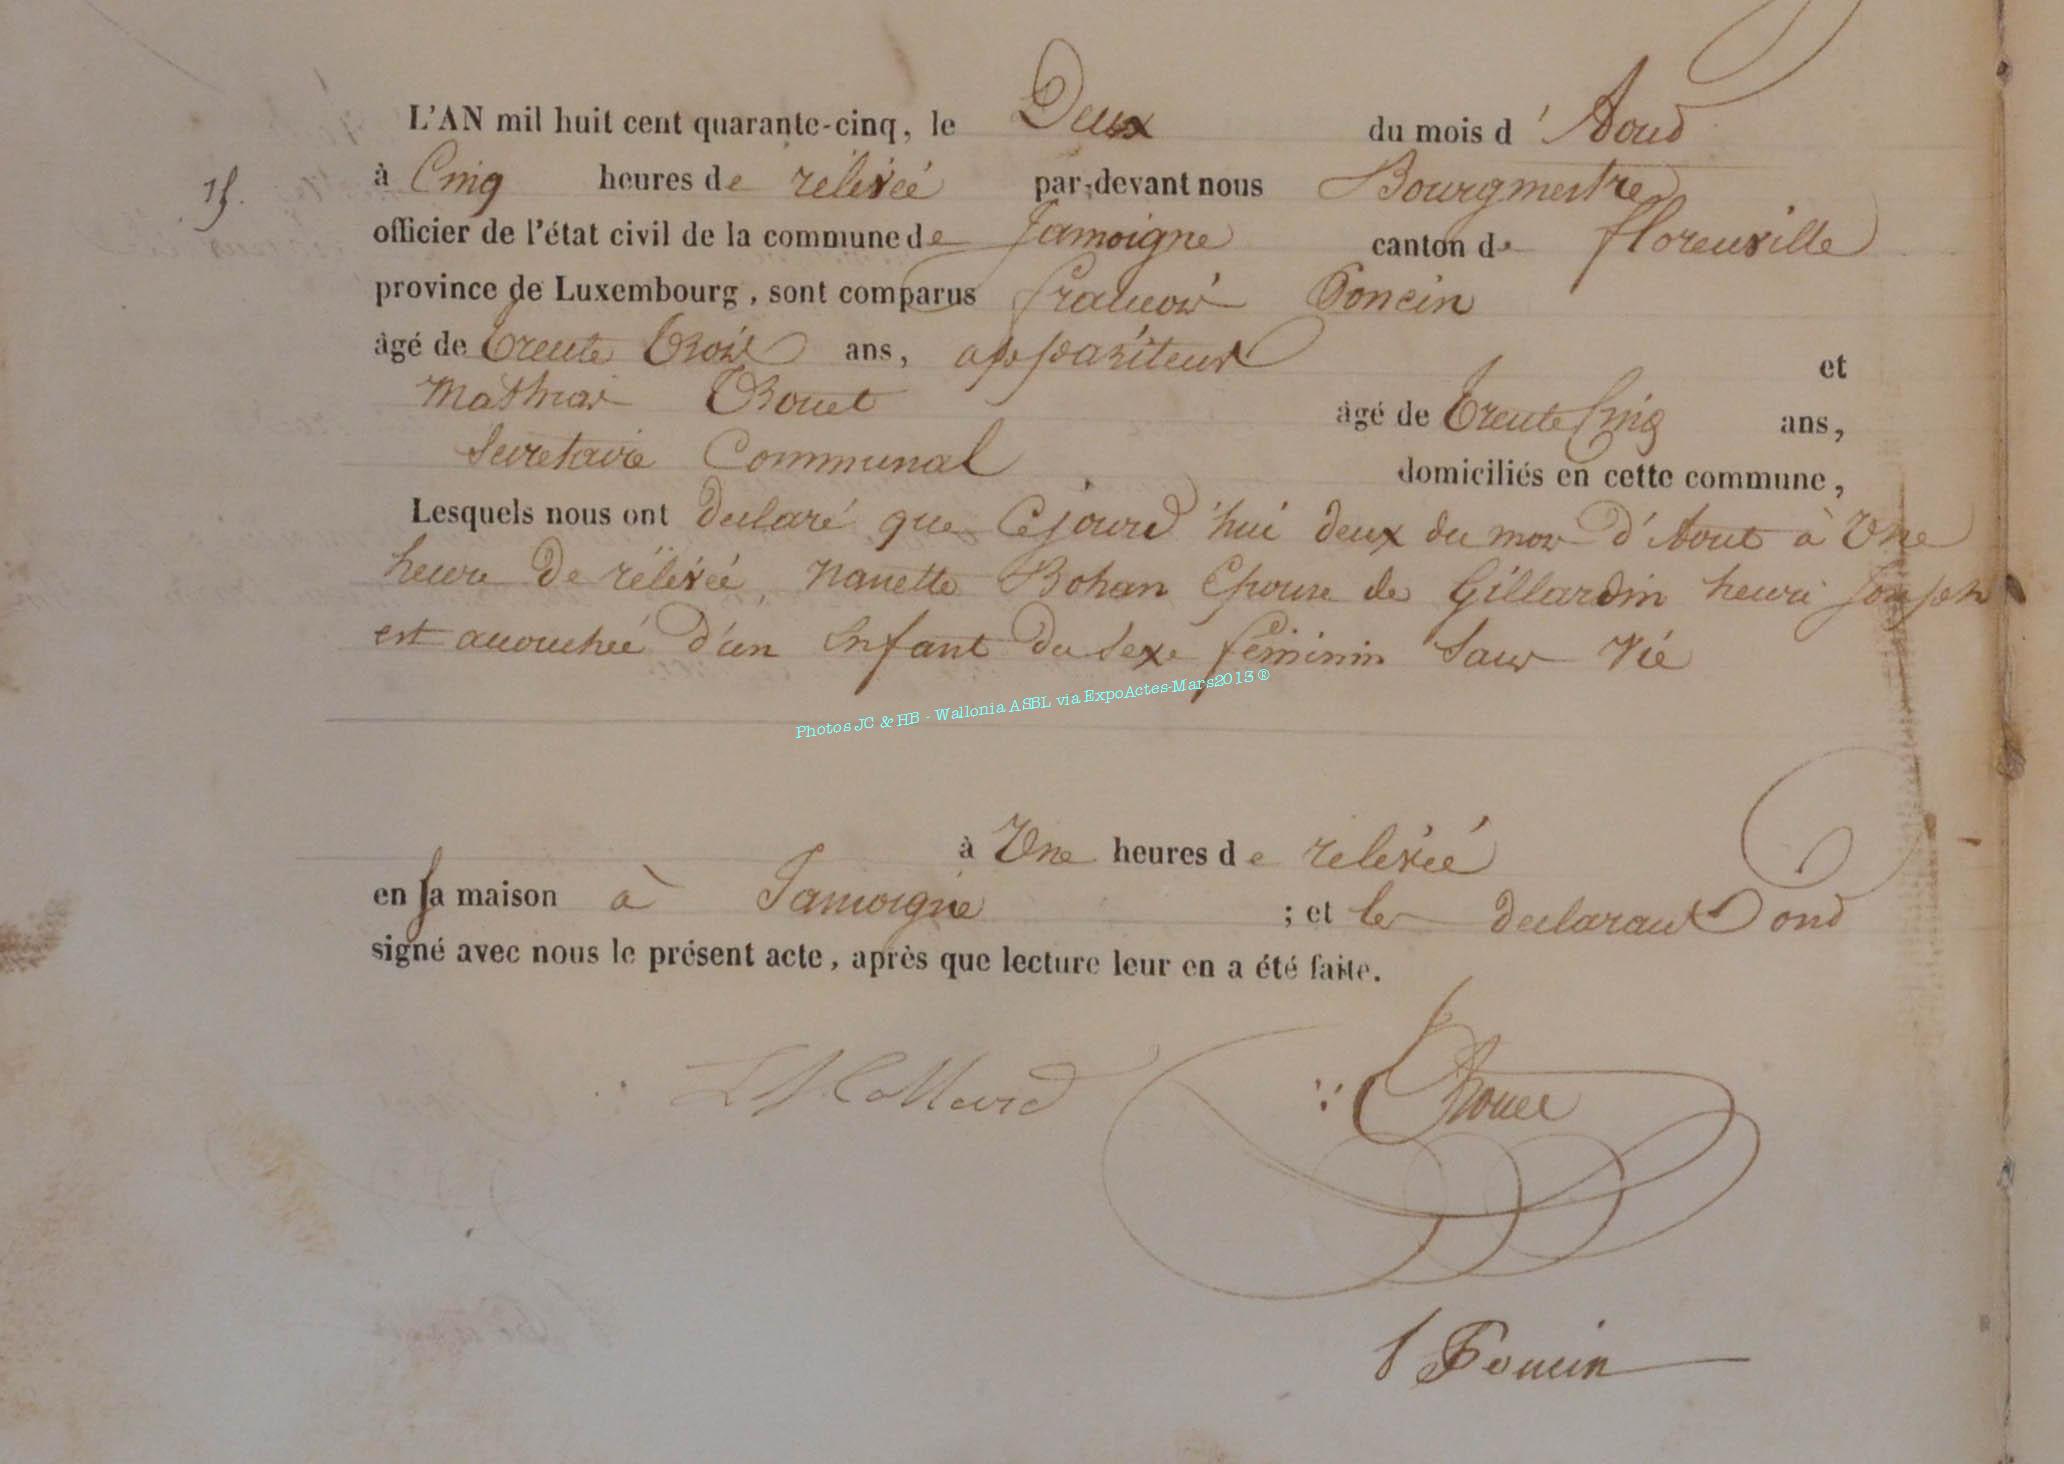 L'AN mil huit cent quarante-cinq, le Deux du mois d'Aoud
15. à Cinq heures de rélévéé par-devant nous Bourgmestre
officier de l'état civil de la commune de Jamoigne canton de florenville
province de Luxembourg, sont comparus francois Poncin
âgé de trente trois ans, appariteur et
Mathias Trouet âgé de trente Cinq ans,
Secretaire Communal domiciliés en cette commune,
Lesquels nous ont declaré que Cejourd'hui deux du mois d'Aout à Une
heure de rélévéé, Nanette Bohan Epouse de Gillardin henri Joseph
est accouchéé d'un Enfant du Sexe féminin Sans Vie
Photos JC & HB - Wallonia ASBL via ExpoActes-Mars2013 ®
à Une heures de relévéé
en sa maison à Jamoigne ; et les declarant ond
signé avec nous le présent acte, après que lecture leur en a été faite.
Collard Trouet
Poncin